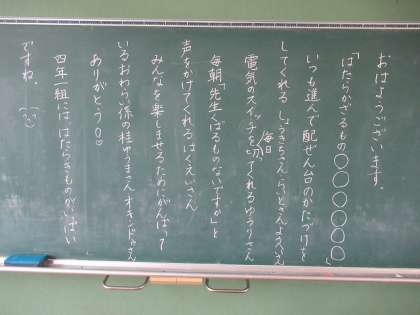 おはようございます。
「はたらかざるもの〇〇〇〇〇〇」
いつも進んで配ぜん台のかたづけを
してくれるしょうきちさん、らいとさん、ようへいさん
電気のスイッチを毎日切ってくれるゆうりさん
毎朝「先生くばるものないですか」と
声をかけてくれるはくえいさん
みんなを楽しませるためにがんばって
いるおわらい係の桂ゆうまさん
ありがとう♡
四年一組には、はたらきものがいっぱい
ですね。